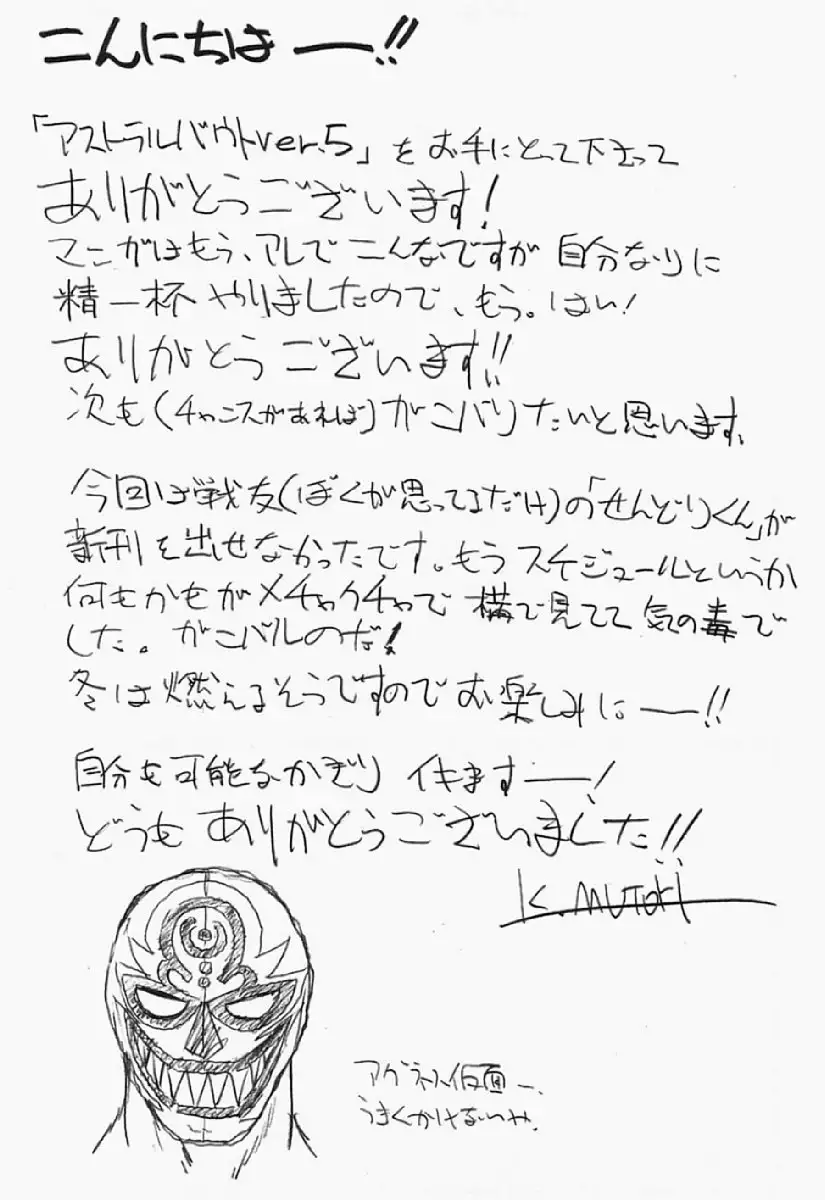 こんにちはー!!
「アストラルバウトver.5」をお手にとって下さって
ありがとうございます!
マンガはもう、アレでこんなですが 自分なりに
精一杯 やりましたので、もう。はい!
ありがとうございます!!
次も(チャンスがあれば)ガンバリたいと思います。
今回は戦友(ぼくが思ってるだけ)の「せんどりくん」が
新刊を出せなかったです。もうスケジュールというか
何もかもがメチャクチャで 横で見てて気の毒で
した。ガンバルのだ!
冬は燃えるそうですのでお楽しみにー!!
自分も可能なかぎり イキますー!
どうもありがとうございました!!
K.MUTOKI
アグネス仮面ー、
うまくかけないや。